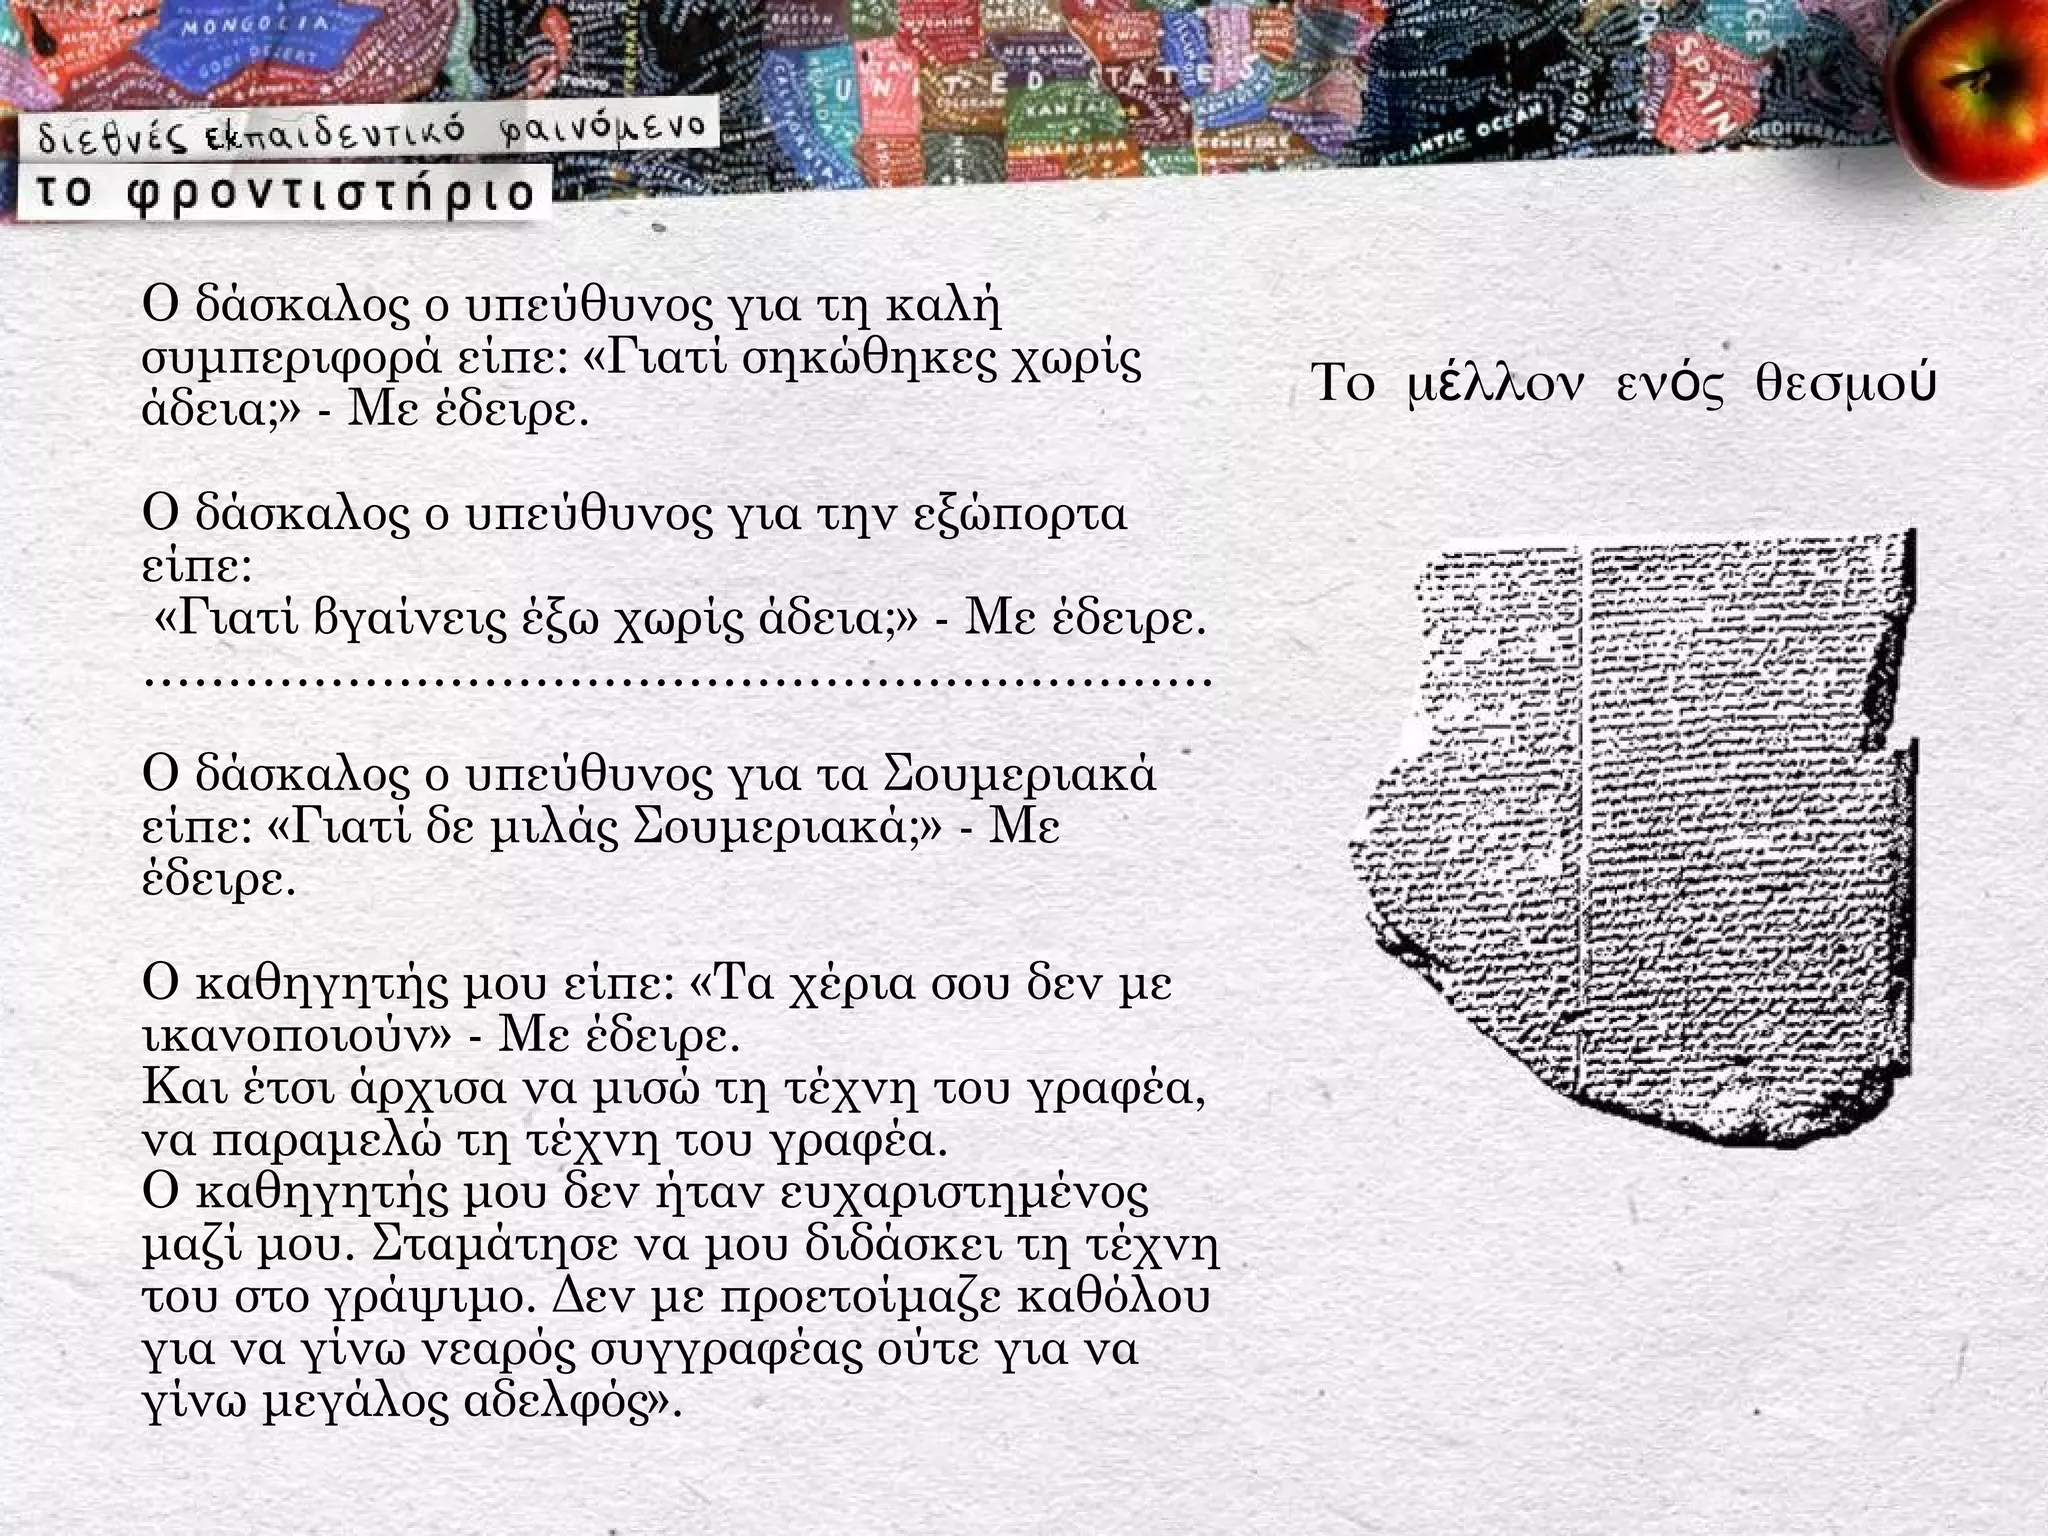 MONGOLIA
GOBI DESERT
TOKYO
UNITED STATES
CALIFORNIA
NEVADA
NEBRASKA
IOWA
COLORADO
KANSAS
OKLAHOMA
KENTUCKY
TENNESSEE
ATLANTIC OCEAN
AZORES
SPAIN
διεθνές εκπαιδευτικό φαινόμενο
το φροντιστήριο
Ο δάσκαλος ο υπεύθυνος για τη καλή
συμπεριφορά είπε: «Γιατί σηκώθηκες χωρίς
άδεια;» - Με έδειρε.
Ο δάσκαλος ο υπεύθυνος για την εξώπορτα
είπε:
«Γιατί βγαίνεις έξω χωρίς άδεια;» - Με έδειρε.
............................................................
Ο δάσκαλος ο υπεύθυνος για τα Σουμεριακά
είπε: «Γιατί δε μιλάς Σουμεριακά;» - Με
έδειρε.
Ο καθηγητής μου είπε: «Τα χέρια σου δεν με
ικανοποιούν» - Με έδειρε.
Και έτσι άρχισα να μισώ τη τέχνη του γραφέα,
να παραμελώ τη τέχνη του γραφέα.
Ο καθηγητής μου δεν ήταν ευχαριστημένος
μαζί μου. Σταμάτησε να μου διδάσκει τη τέχνη
του στο γράψιμο. Δεν με προετοίμαζε καθόλου
για να γίνω νεαρός συγγραφέας ούτε για να
γίνω μεγάλος αδελφός».
Το μέλλον ενός θεσμού